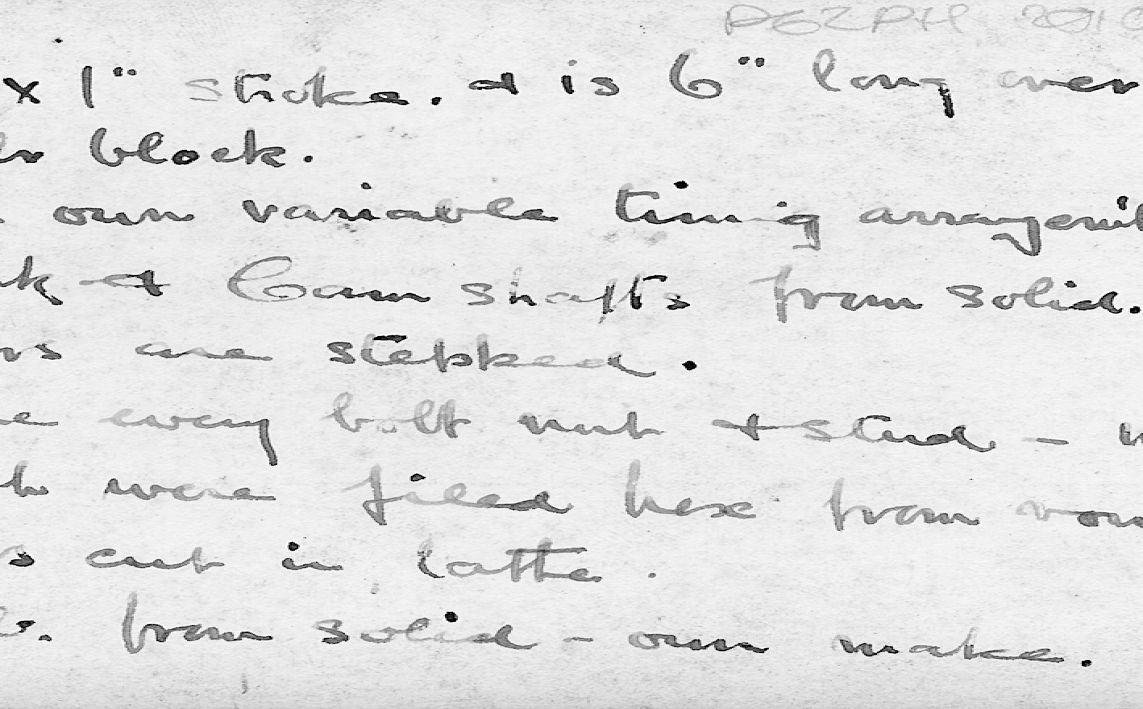 x 1" stroke. & is 6" long over
block.
own variable timing
& Cam shafts from solid.
are stepped.
every bolt nut & stud -
were filed hex from
cut in lathe.
from solid - own make.